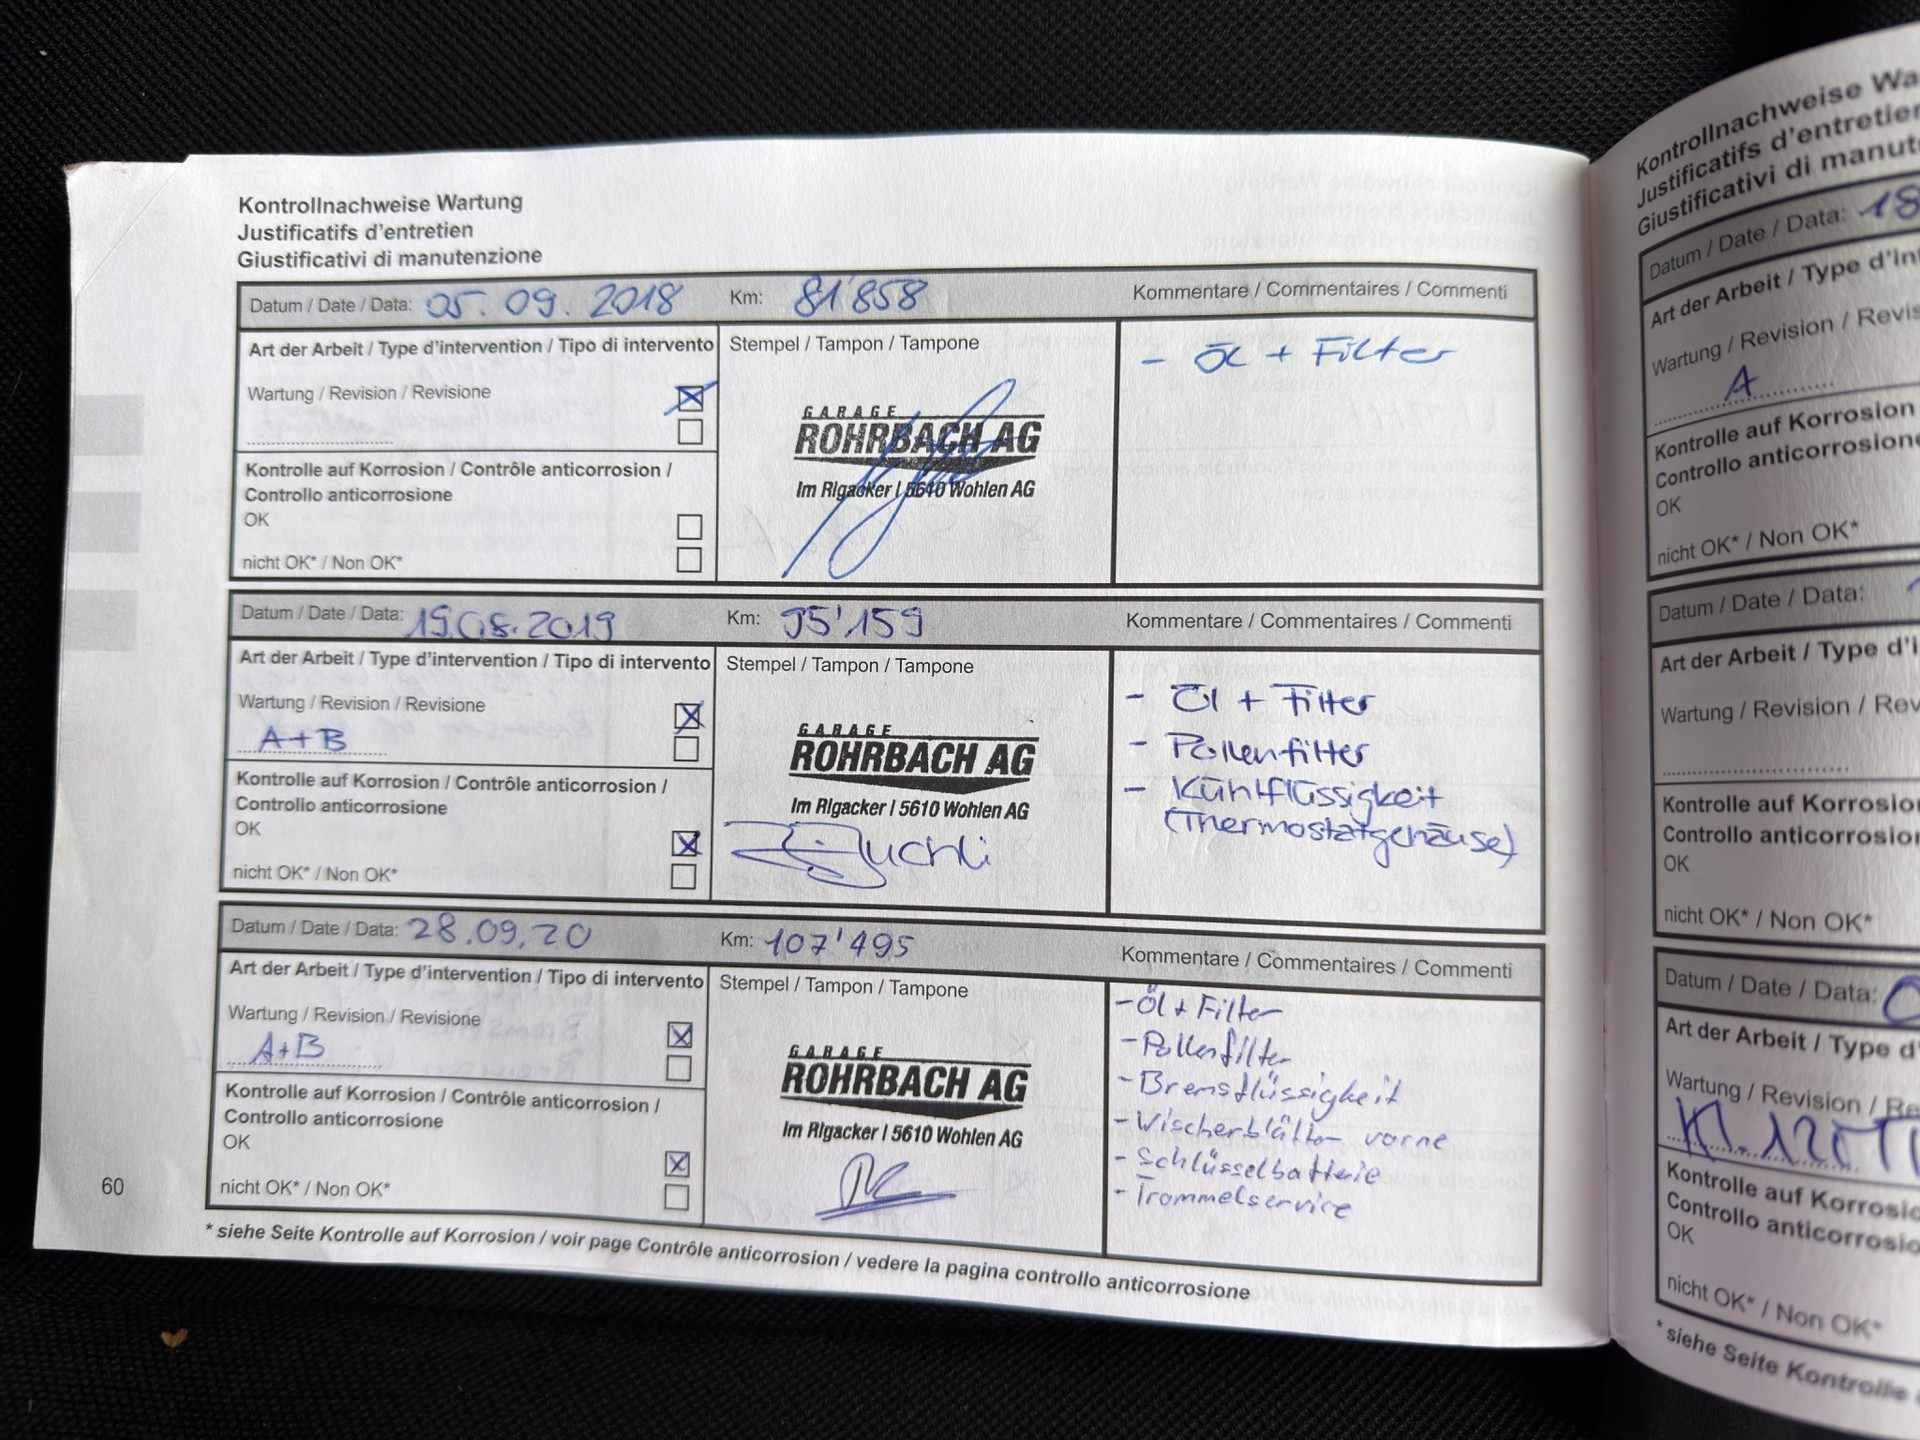 Kontrollnachweise Wartung
Justificatifs d'entretien
Giustificativi di manutenzione
Datum / Date / Data: 05.09.2018 Km: 81'858 Kommentare / Commentaires / Commenti
Art der Arbeit / Type d'intervention / Tipo di intervento
Wartung / Revision / Revisione
Kontrolle auf Korrosion / Contrôle anticorrosion /
Controllo anticorrosione
OK
nicht OK* / Non OK*
Stempel / Tampon / Tampone
GARAGE
ROHRBACH AG
Im Rigacker | 5610 Wohlen AG
- Öl + Filter
Datum / Date / Data: 19.08.2019 Km: 95'159 Kommentare / Commentaires / Commenti
Art der Arbeit / Type d'intervention / Tipo di intervento
Wartung / Revision / Revisione
A+B
Kontrolle auf Korrosion / Contrôle anticorrosion /
Controllo anticorrosione
OK
nicht OK* / Non OK*
Stempel / Tampon / Tampone
GARAGE
ROHRBACH AG
Im Rigacker | 5610 Wohlen AG
- Öl + Filter
- Pollenfilter
- Kühlflüssigkeit
(Thermostatgehäuse)
Datum / Date / Data: 28.09.20 Km: 107'495 Kommentare / Commentaires / Commenti
Art der Arbeit / Type d'intervention / Tipo di intervento
Wartung / Revision / Revisione
A+B
Kontrolle auf Korrosion / Contrôle anticorrosion /
Controllo anticorrosione
OK
nicht OK* / Non OK*
Stempel / Tampon / Tampone
GARAGE
ROHRBACH AG
Im Rigacker | 5610 Wohlen AG
- Öl + Filter
- Pollenfilter
- Bremsflüssigkeit
- Wischerblätter vorne
- Schlüsselbatterie
- Trommelservice
60
* siehe Seite Kontrolle auf Korrosion / voir page Contrôle anticorrosion / vedere la pagina controllo anticorrosione
Kontrollnachweise Wa
Justificatifs d'entretien
Giustificativi di manut
Datum / Date / Data: 18
Art der Arbeit / Type d'in
Wartung / Revision / Revis
A
Kontrolle auf Korrosion
Controllo anticorrosione
OK
nicht OK* / Non OK*
Datum / Date / Data:
Art der Arbeit / Type d'i
Wartung / Revision / Rev
Kontrolle auf Korrosio
Controllo anticorrosio
OK
nicht OK* / Non OK*
Datum / Date / Data: 0
Art der Arbeit / Type d'
Wartung / Revision / Re
Kontrolle auf Korrosio
Controllo anticorrosio
OK
nicht OK* / Non OK*
* siehe Seite Kontrolle